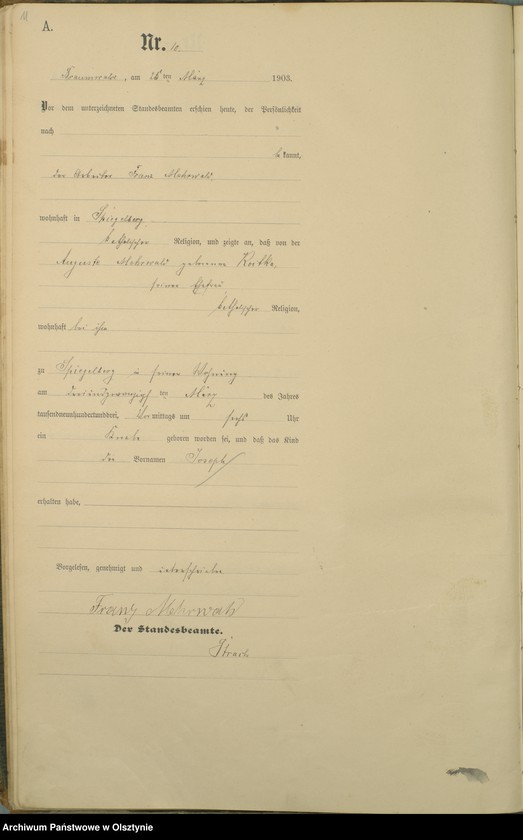 A.
Nr. 10
am 26 ten März 1903.
Vor dem unterzeichneten Standesbeamten erschien heute, der Persönlichkeit
nach
kannt,
der Arbeiter Franz Mehrwald,
wohnhaft in Spiegelberg,
katholischer Religion, und zeigte an, daß von der
Auguste Mehrwald geborenen
seiner Ehefrau
katholischer Religion,
wohnhaft bei ihm
zu Spiegelberg in seiner Wohnung
am dreiundzwanzigsten März des Jahres
tausendneunhundertunddrei, Vormittags um sechs Uhr
ein Knabe geboren worden sei, und daß das Kind
den Vornamen Joseph
erhalten habe,
Vorgelesen, genehmigt und unterschrieben
Franz Mehrwald
Der Standesbeamte.
Archiwum Państwowe w Olsztynie